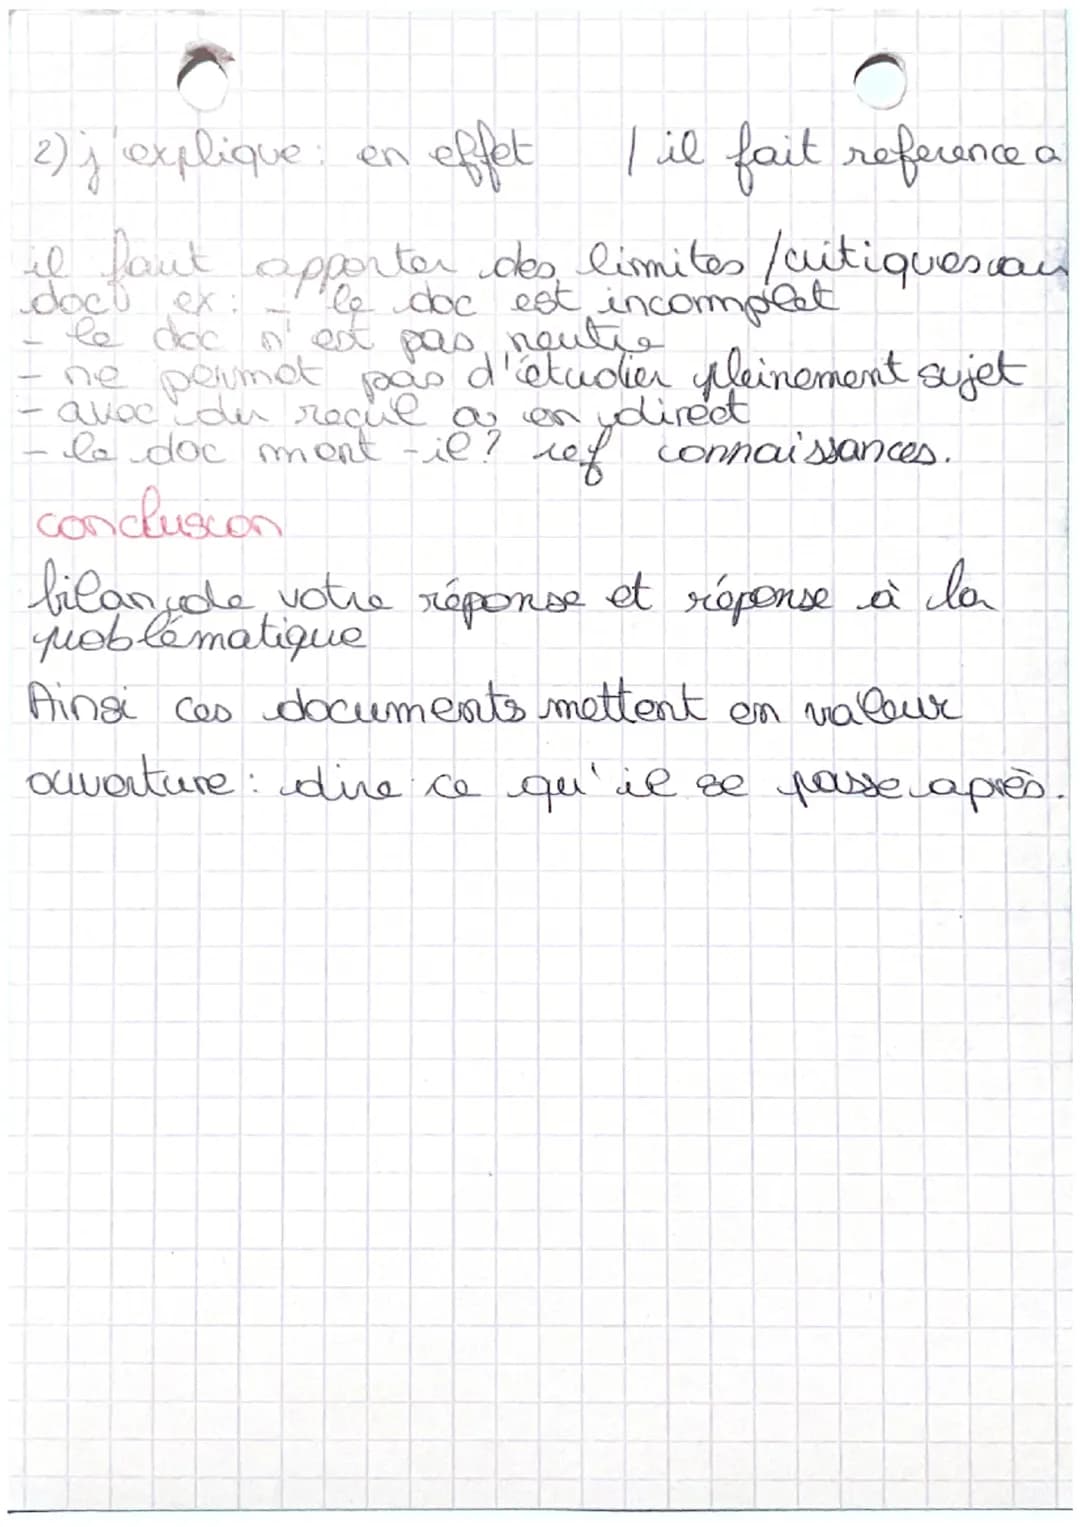 2) j'explique : en effet / il fait reference a
il faut apporter des limites /critiques au
doc ex : - le doc est incomplet
- le doc n'est pas neutre
- ne permet pas d'étudier pleinement sujet
- avec du recul en direct
- le doc ment-il? ref connaissances.
conclusion
bilan de votre réponse et réponse à la
problématique
Ainsi ces documents mettent en valeur
ouverture : dire ce qu'il se passe après.